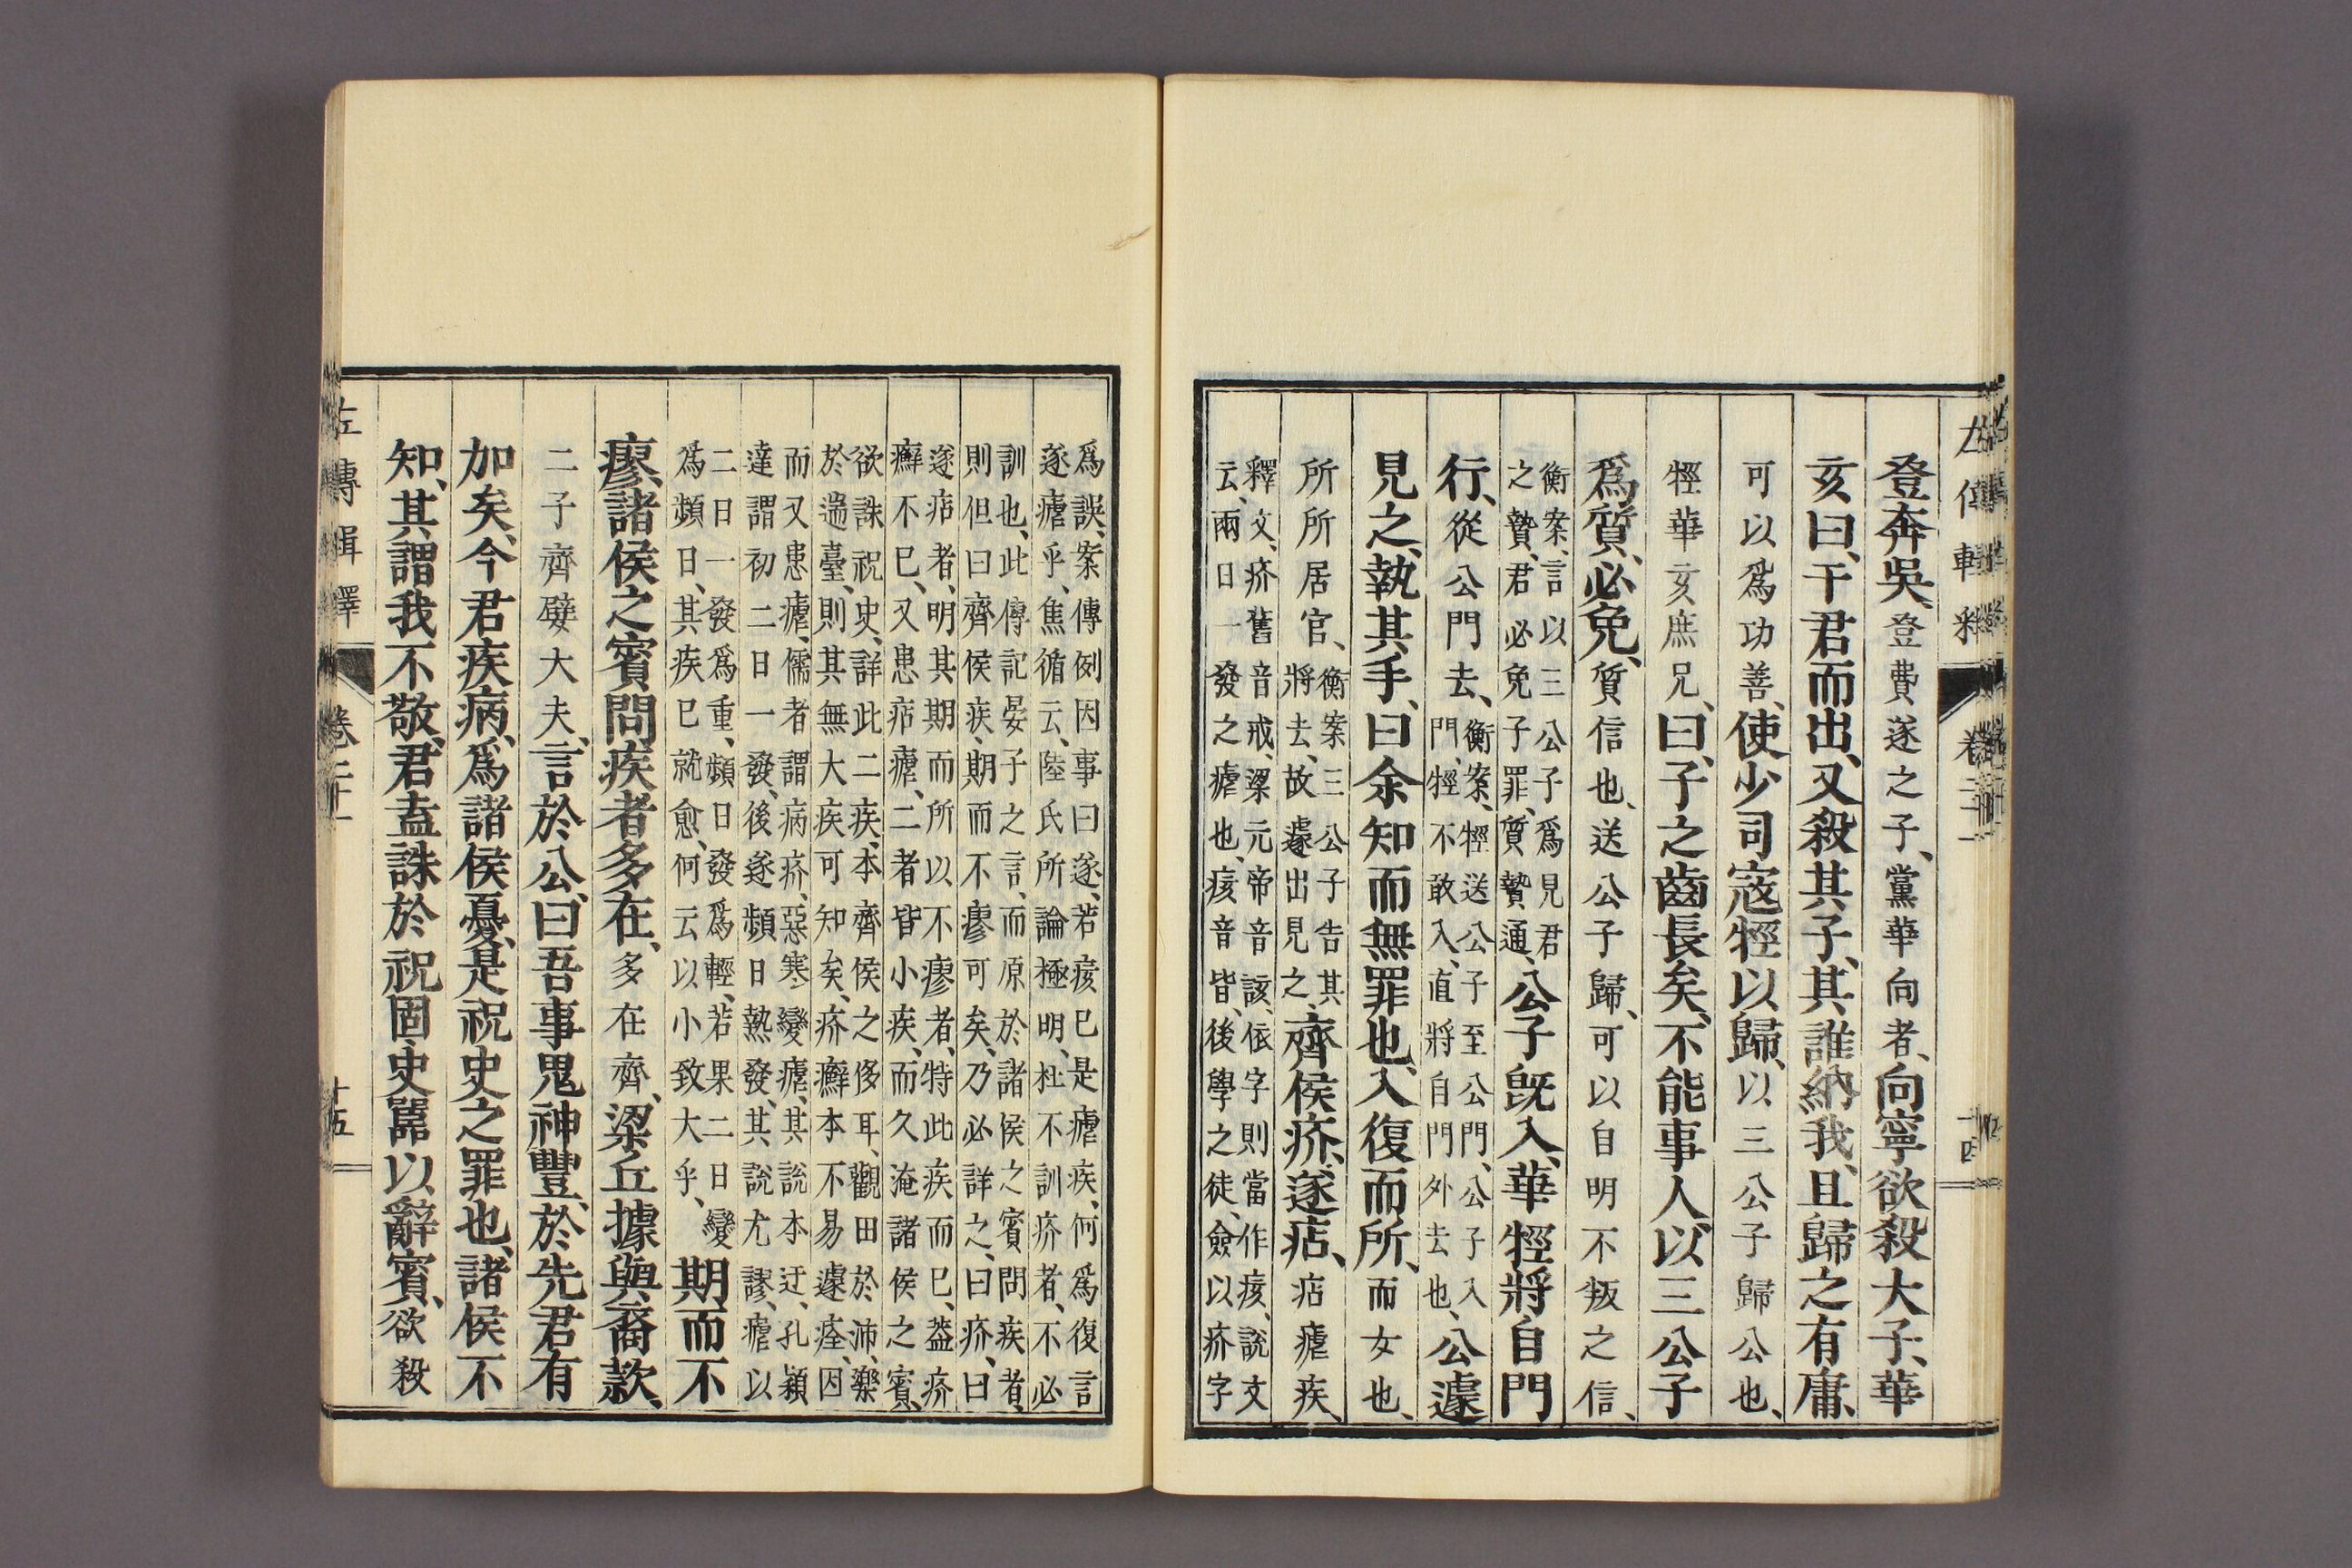 左傳輯釋 卷二十一 十四
登奔吳、登費遂之子、黨華向者、向寧欲殺大子、華
亥曰、干君而出、又殺其子、其誰納我、且歸之有庸、
可以爲功善、使少司寇牼以歸、以三公子歸公也、
牼華亥庶兄、曰、子之齒長矣、不能事人、以三公子
爲質、必免、質信也、送公子歸、可以自明不叛之信、
衡案、言以三公子爲見君
之贄、君必免子罪、質贄通、公子既入、華牼將自門
行、從公門去、衡案、牼送公子至公門、公子入
門、牼不敢入、直將自門外去也、公遽
見之、執其手、曰、余知而無罪也、入復而所、而女也、
所所居官、衡案三公子告其
將去、故遽出見之、齊侯疥、遂痁、痁瘧疾、
釋文、疥舊音戒、梁元帝音該、依字則當作痎、說文
云、兩日一發之瘧也、痎音皆、後學之徒、僉以疥字
爲誤、案傳例因事曰遂、若痎已是瘧疾、何爲復言
遂瘧乎、焦循云、陸氏所論極明、杜不訓疥者、不必
訓也、此傳記晏子之言、而原於諸侯之賓問疾者、
則但曰齊侯疾、期而不瘳可矣、乃必詳之、曰疥、曰
遂痁者、明其期而所以不瘳者、特此疾而已、蓋疥
癬不已、又患痁瘧、二者皆小疾、而久淹諸侯之賓、
欲誅祝史、詳此二疾、本齊侯之侈耳、觀田於沛、樂
於遄臺、則其無大疾可知矣、疥癬本不易遽痊、因
而又患瘧、儒者謂病疥、惡寒變瘧、其說本迂、孔穎
達謂初二日一發、後遂頻日熱發、其說尤謬、瘧以
二日一發爲重、頻日發爲輕、若果二日變
爲頻日、其疾已就愈、何云以小致大乎、期而不
瘳、諸侯之賓問疾者多在、多在齊、梁丘據與裔款、
二子齊嬖大夫、言於公、曰吾事鬼神豐、於先君有
加矣、今君疾病、爲諸侯憂、是祝史之罪也、諸侯不
知、其謂我不敬、君盍誅於祝固史嚚以辭賓、欲殺
左傳輯釋 卷二十一 十五